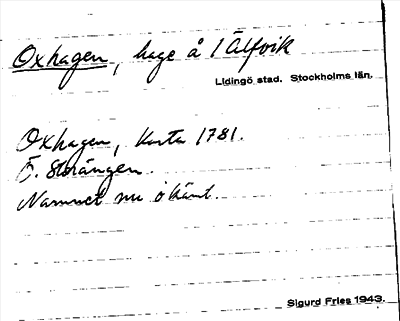 Oxhagen, hage å 1 Älfvik
Lidingö stad. Stockholms län.
Oxhagen, Karta 1781.
Ö. Storängen.
Namnet nu okänt.
Sigurd Fries 1943.